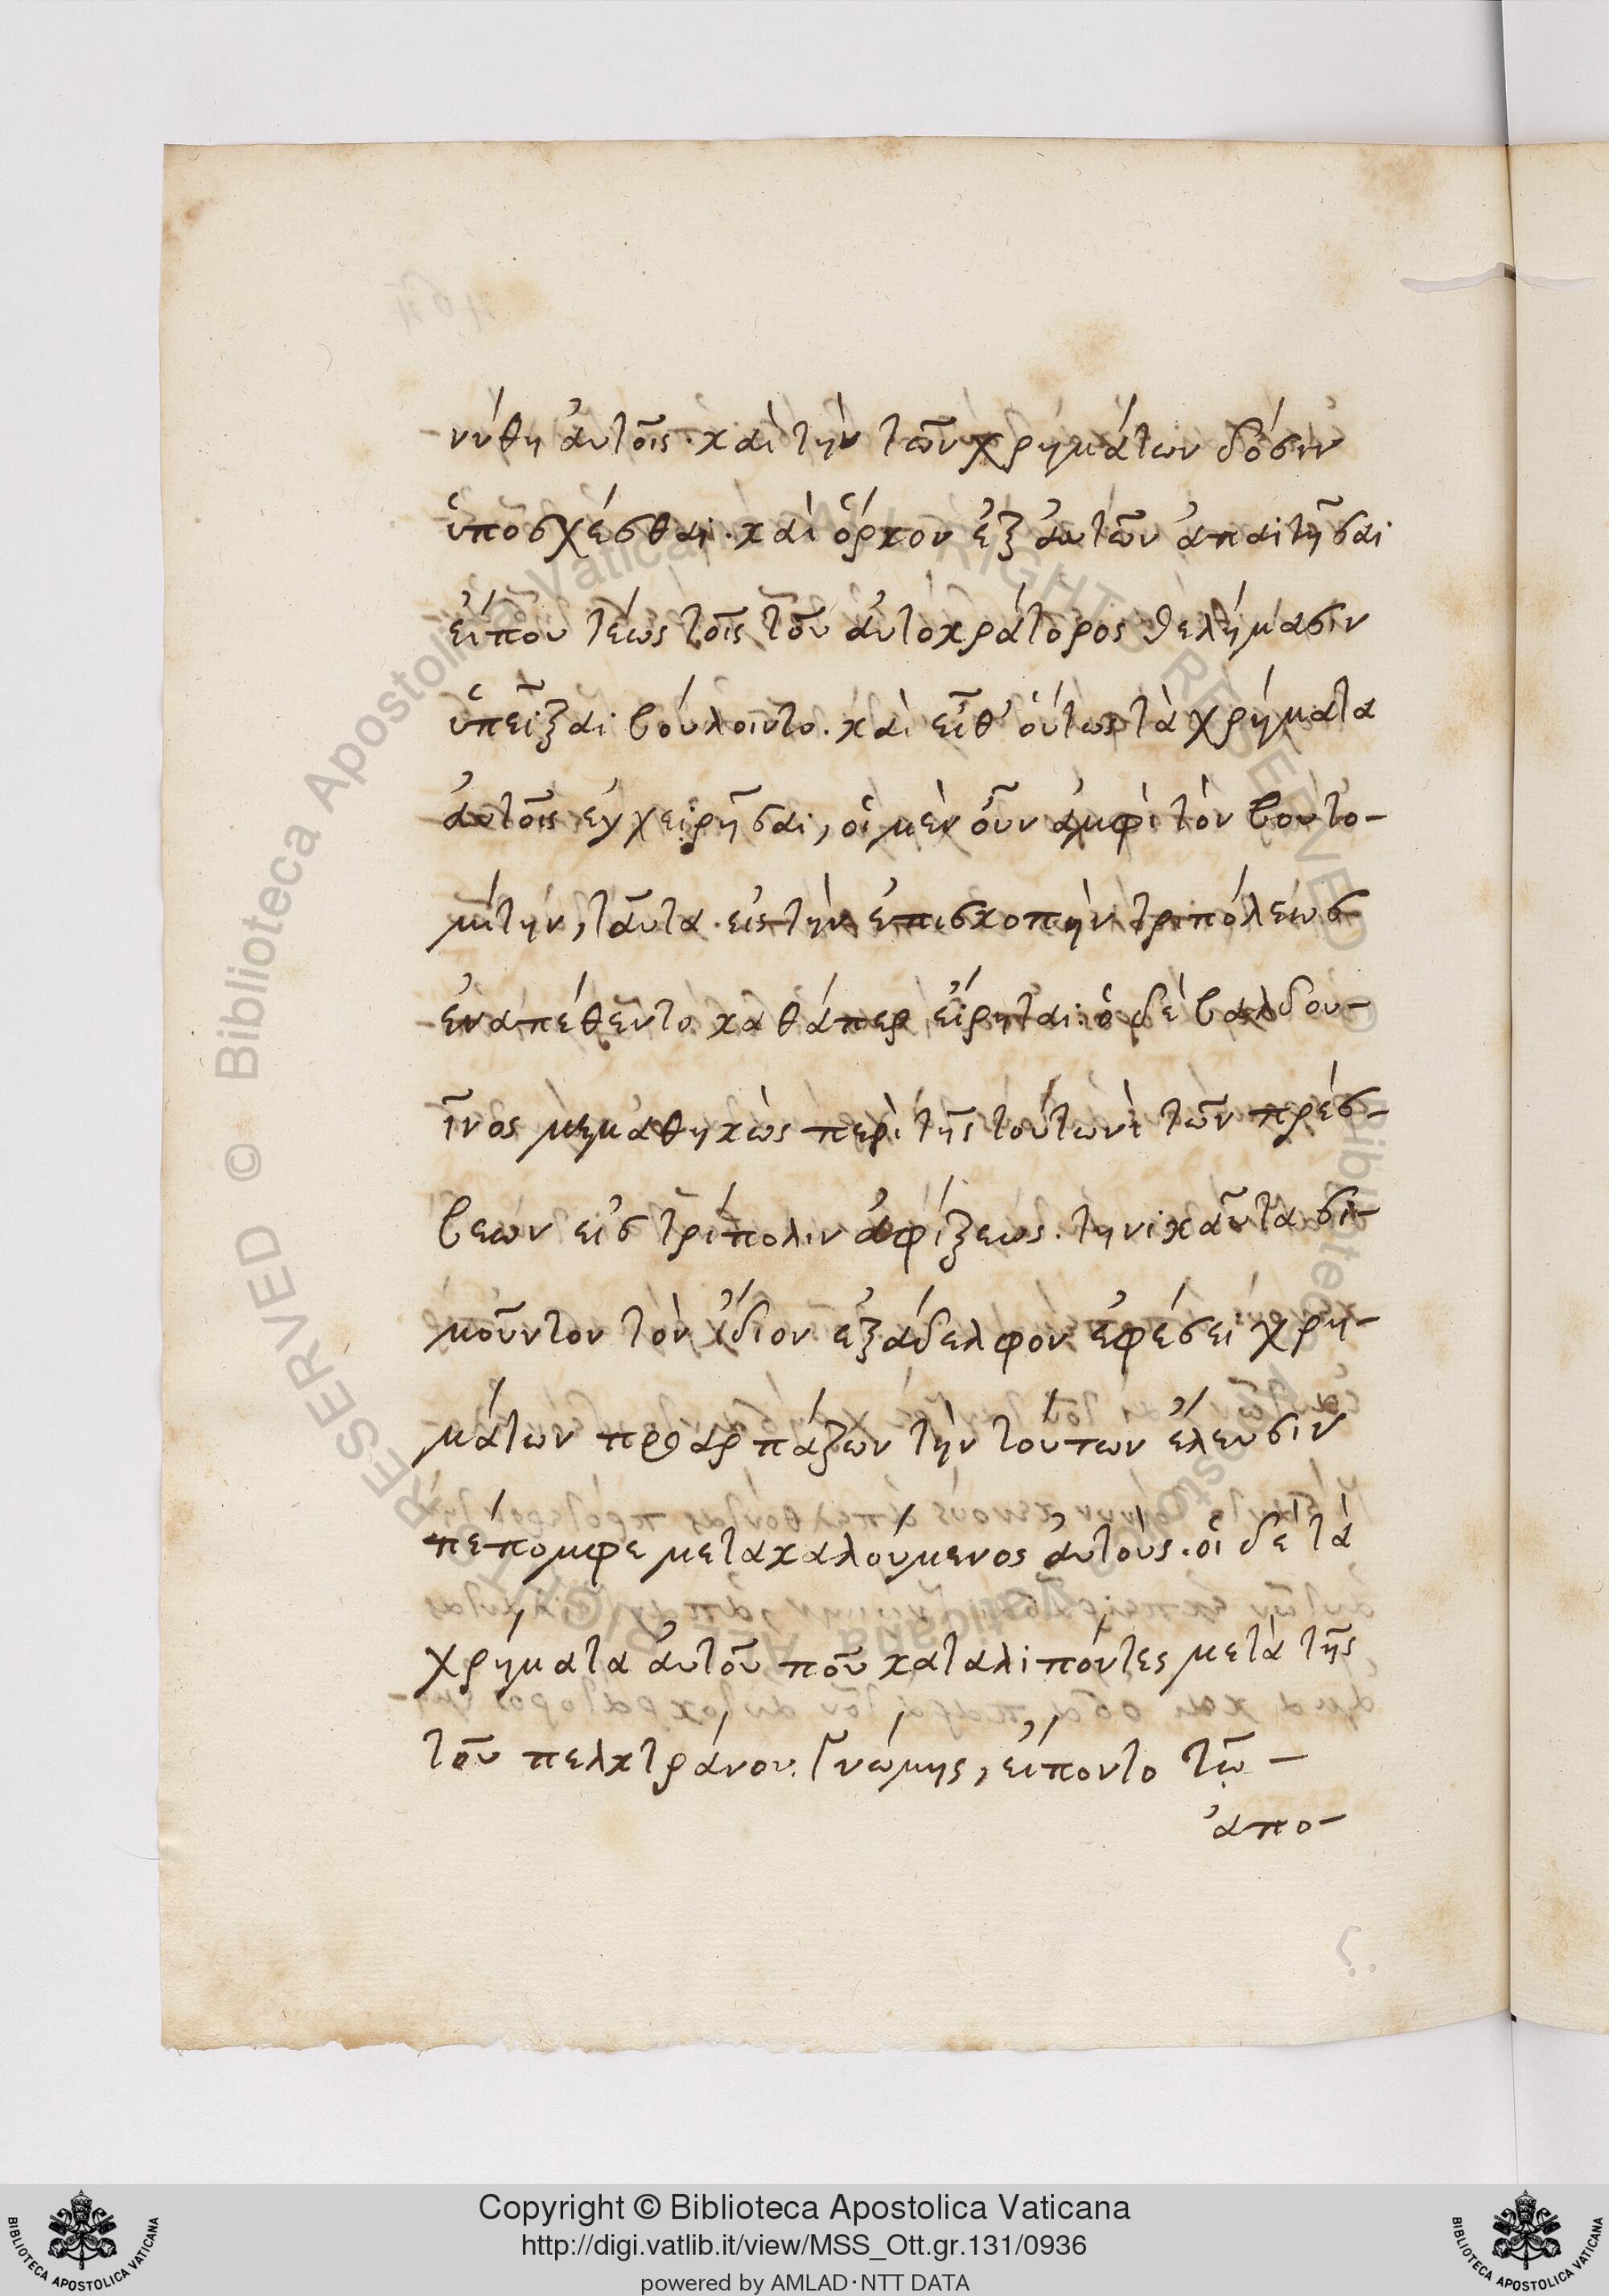 νύθη ἀυτοῖς. καὶ τὴν τῶν χρημάτων δόσιν
ὑποσχέσθαι. καὶ ὅρκον ἐξ ἀυτῶν ἀπαιτῆσαι
εἴπου τέως τοῖς τοῦ ἀυτοκράτορος θελήμασιν
ὑπεῖξαι βούλοιντο. καὶ εἶθ' ὁύτως τὰ χρήματα
ἀυτοῖς εγχειρῆσαι, οἱ μὲν οὖν ἀμφὶ τὸν βουτο-
μίτην, ταῦτα εἰς τὴν ἐπισκοπὴν τριπόλεως
ἐναπέθεντο καθάπερ εἴρηται. ὁ δὲ βαλδου-
ῖνος μεμαθηκὼς περὶ τῆς τούτωνὶ τῶν πρέσ-
βεων εἰς τρίπολιν ἀφίξεως. τηνικαῦτα σι-
μοῦντον τὸν ἴδιον ἐξάδελφον ἐφέσει χρη-
μάτων προαρπάζων τὴν τούτων ἔλευσιν
πέπομφε μετακαλούμενος ἀυτοὺς. οἱ δὲ τὰ
χρήματα ἀυτοῦ που καταλιπόντες μετὰ τῆς
τοῦ πελκτράνου γνώμης, εἵποντο τῷ -
ἀπο-
Copyright © Biblioteca Apostolica Vaticana
http://digi.vatlib.it/view/MSS_Ott.gr.131/0936
powered by AMLAD·NTT DATA
BIBLIOTECA APOSTOLICA VATICANA
BIBLIOTECA APOSTOLICA VATICANA